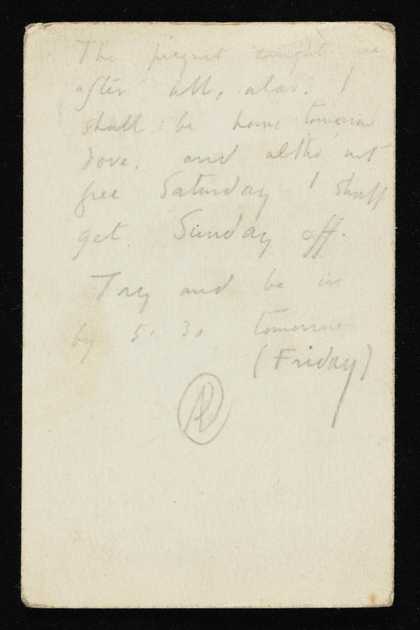 The picquet caught me
after all, alas. I
shall be home tomorrow
Dove, and altho not
free Saturday I shall
get Sunday off.
Try and be in
by 5.30 tomorrow
(Friday)